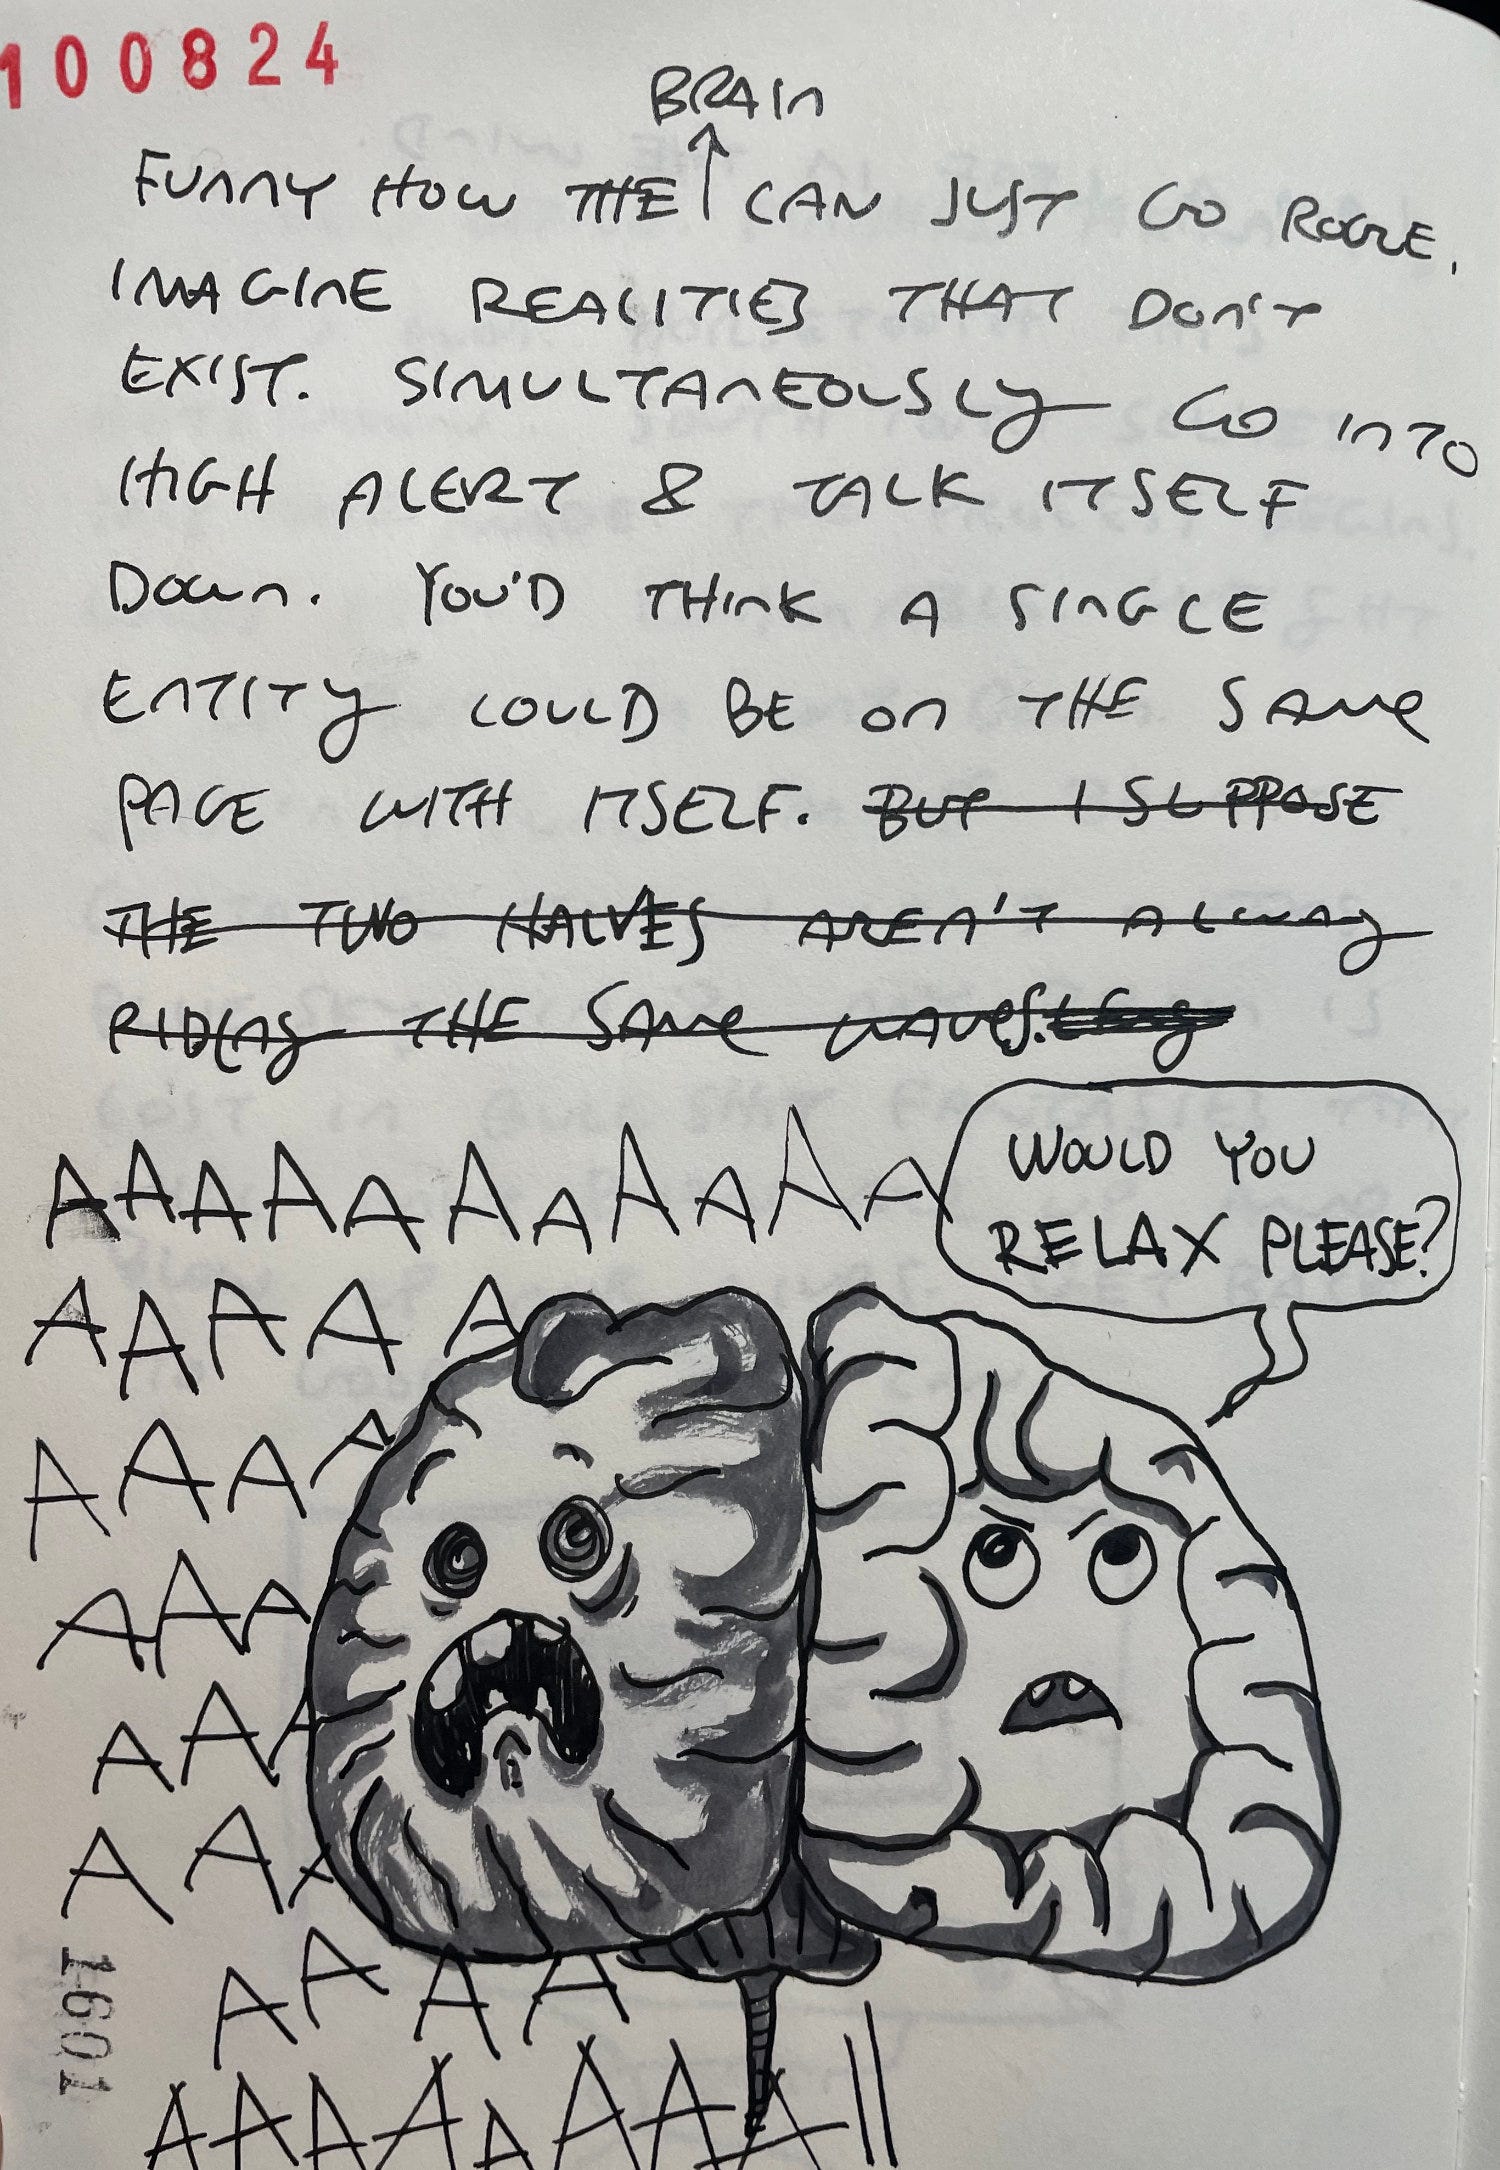 100824
BRAIN
FUNNY HOW THE ↑ CAN JUST GO ROGUE.
IMAGINE REALITIES THAT DON'T
EXIST. SIMULTANEOUSLY GO INTO
HIGH ALERT & TALK ITSELF
DOWN. YOU'D THINK A SINGLE
ENTITY COULD BE ON THE SAME
PAGE WITH ITSELF. BUT I SUPPOSE
THE TWO HALVES AREN'T ALWAY
RIDING THE SAME WAVES.
WOULD YOU
RELAX PLEASE?
AAAAAAAAAAA
AAAAA
AAAA
AAA
AAA
AAA
AAAA
AAAAAAAA!!
1601